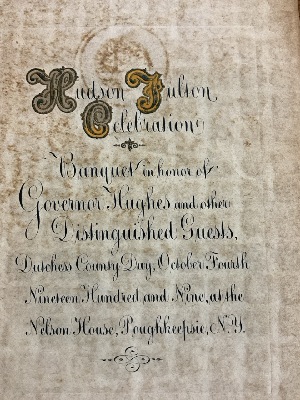 Hudson Fulton
Celebration
Banquet in honor of
Governor Hughes and other
Distinguished Guests,
Dutchess County Day, October Fourth
Nineteen Hundred and Nine, at the
Nelson House, Poughkeepsie, N.Y.